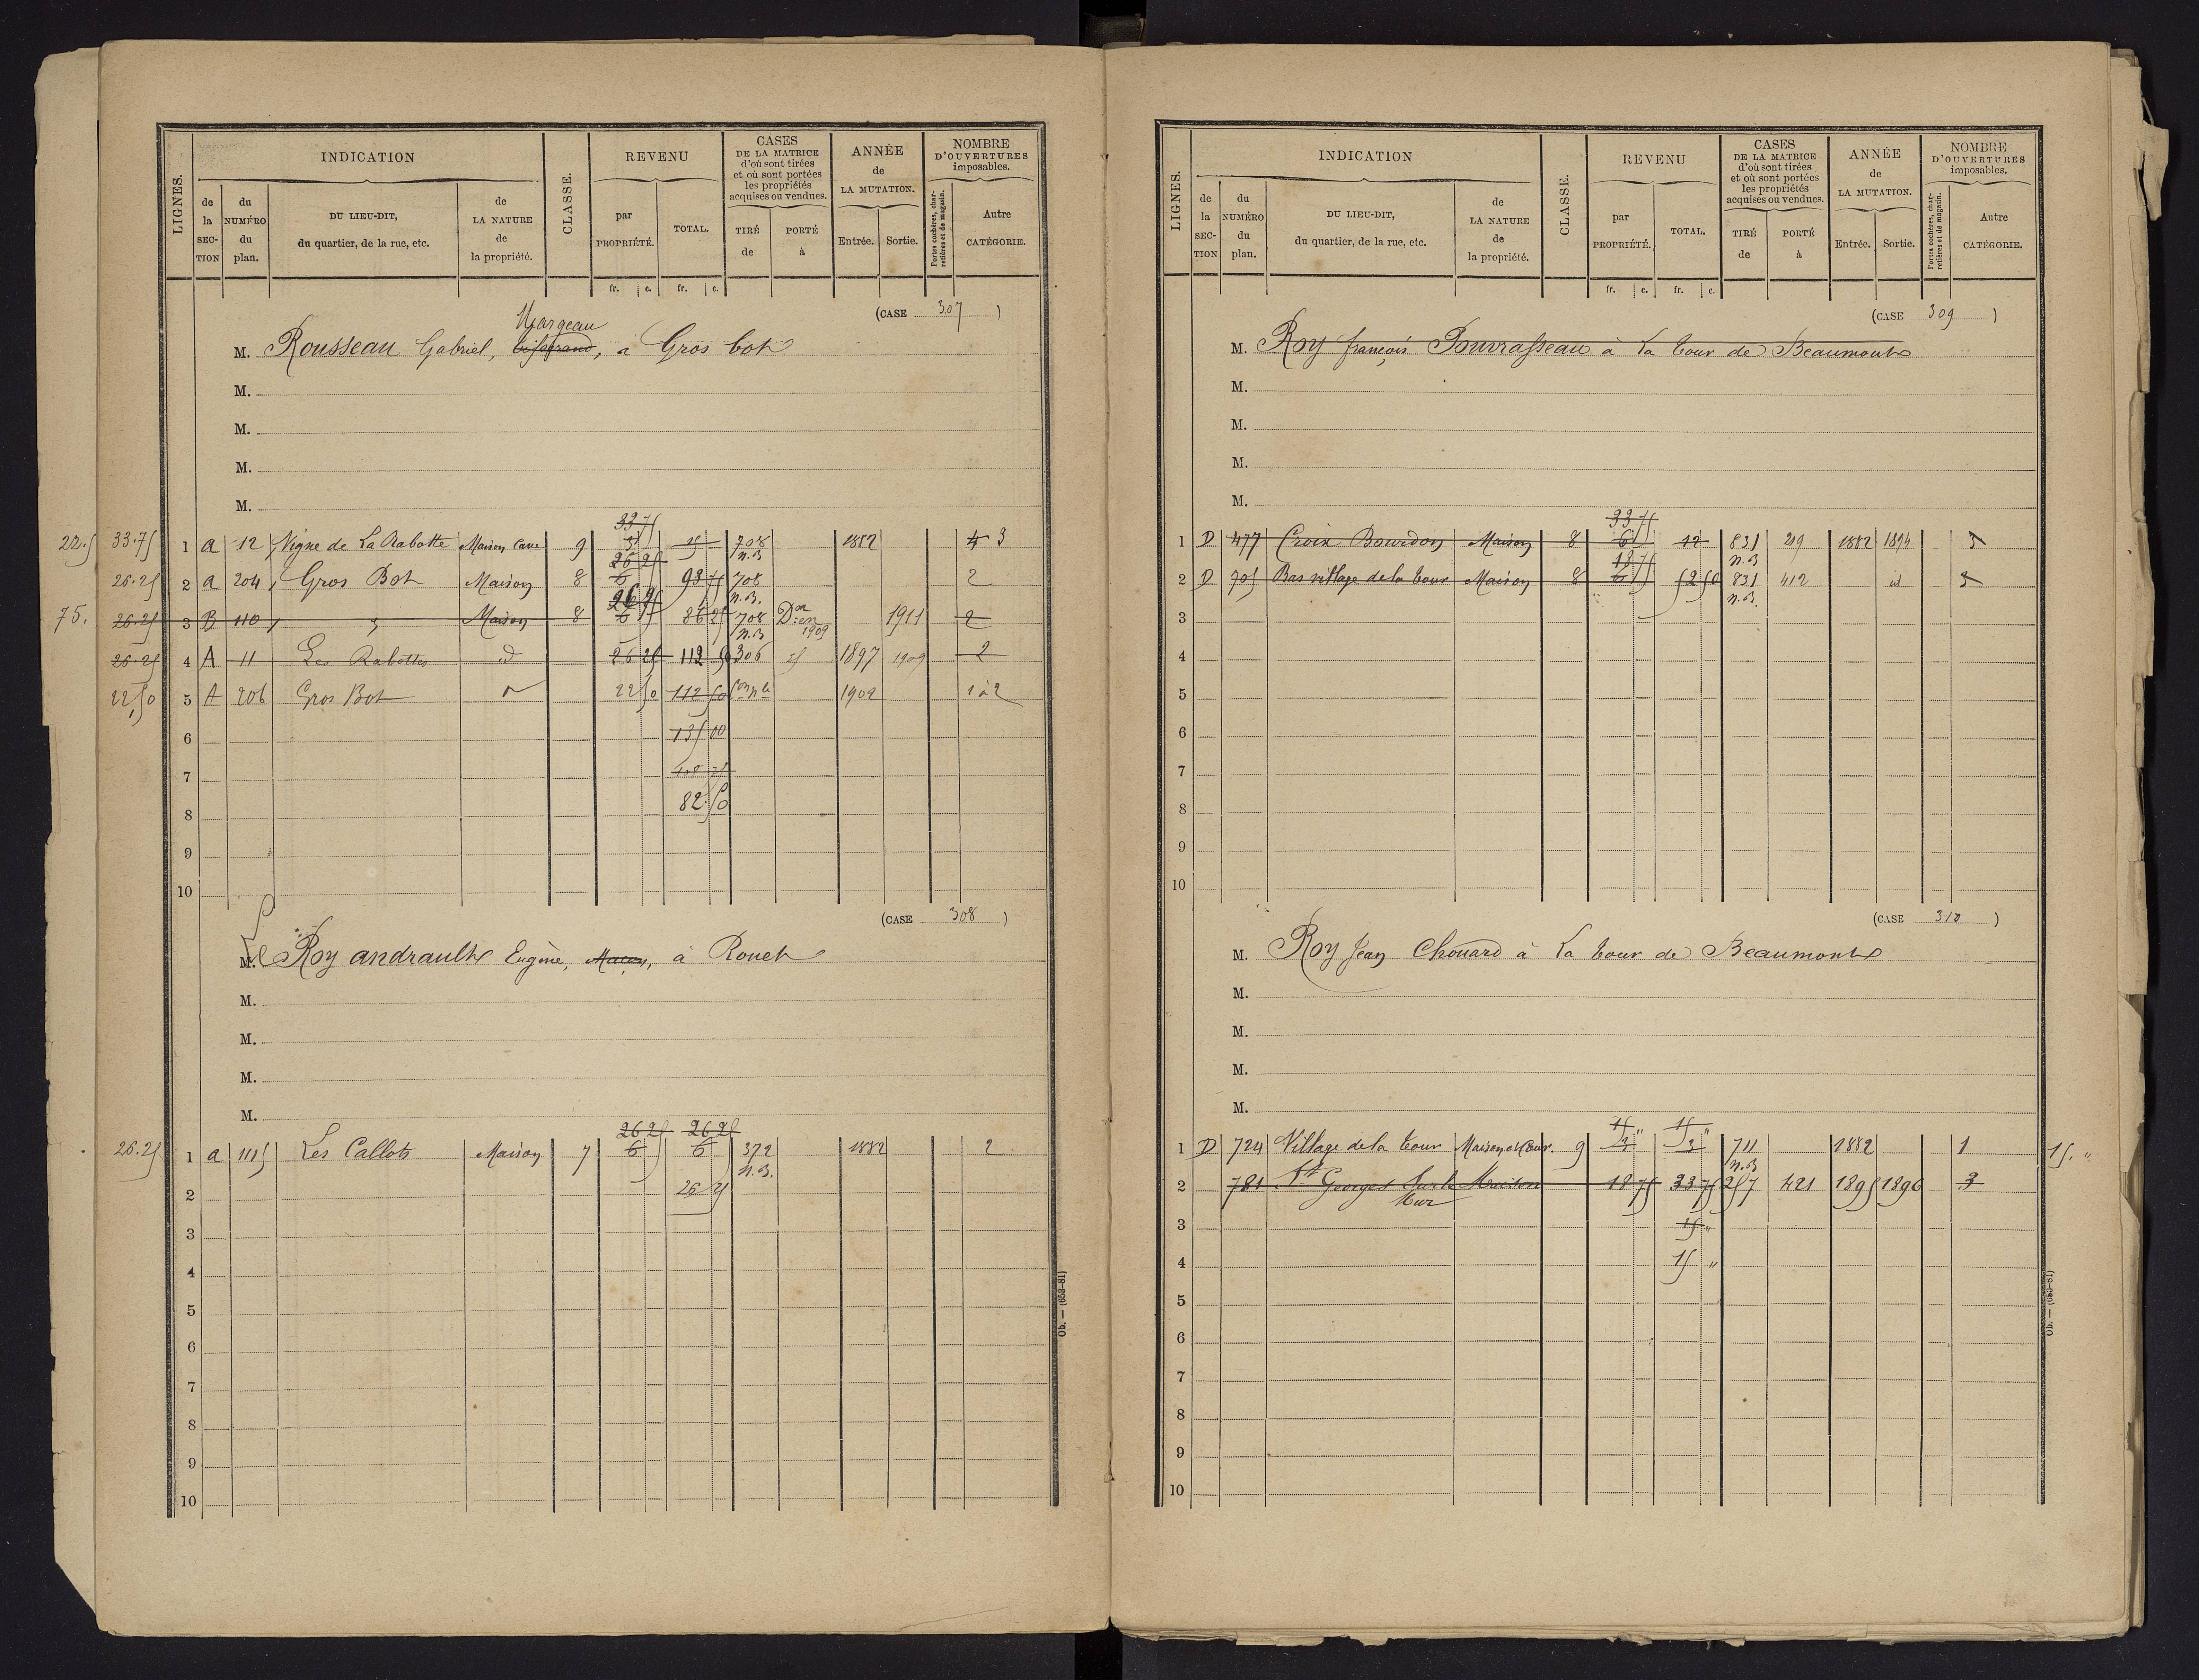 LIGNES.
INDICATION
de la SECTION
du NUMÉRO du plan.
DU LIEU-DIT, du quartier, de la rue, etc.
de LA NATURE de la propriété.
CLASSE.
REVENU
par PROPRIÉTÉ.
TOTAL.
fr. c. fr. c.
CASES DE LA MATRICE d'où sont tirées et où sont portées les propriétés acquises ou vendues.
TIRÉ de
PORTÉ à
ANNÉE de LA MUTATION.
Entrée. Sortie.
NOMBRE D'OUVERTURES imposables.
Portes cochères, charretières et de magasin.
Autre CATÉGORIE.
(CASE 307 )
Margeau
M. Rousseau Gabriel, à Gros bot
M.
M.
M.
M.
33 75
22.5 33.75 1 a 12 Vigne de La Rabotte Maison Cave 9 3 708 n.B 1882 4 3
26 25
26.25 2 a 204 Gros Bot Maison 8 6 93 75 708 n.B. 2
26 25
75. 26.25 3 B 110 " Maison 8 6 86 25 708 n.B Don en 1909 1911 2
26.25 4 A 11 Les Rabottes d 26 25 112 50 306 1897 1909 2
22,50 5 A 206 Gros Bot 22 50 112 50 1902 1 à 2
6 135 00
7 108 75
82.50
8
9
10
(CASE 308 )
M. Le Roy andrault Eugène, Maçon, à Rouet
M.
M.
M.
M.
26 25 26 25
26.25 1 a 1115 Les Callots Maison 7 6 6 372 n.B. 1882 2
2 26 25
3
4
5
6
7
8
9
10
Ob. — (653-81)
LIGNES.
INDICATION
de la SECTION
du NUMÉRO du plan.
DU LIEU-DIT, du quartier, de la rue, etc.
de LA NATURE de la propriété.
CLASSE.
REVENU
par PROPRIÉTÉ.
TOTAL.
fr. c. fr. c.
CASES DE LA MATRICE d'où sont tirées et où sont portées les propriétés acquises ou vendues.
TIRÉ de
PORTÉ à
ANNÉE de LA MUTATION.
Entrée. Sortie.
NOMBRE D'OUVERTURES imposables.
Portes cochères, charretières et de magasin.
Autre CATÉGORIE.
(CASE 309 )
M. Roy françois Pouvrasseau à La tour de Beaumont
M.
M.
M.
M.
33 75
1 D 477 Croix Bourdon Maison 8 6 12 831 n.B 219 1882 1894 3
18 75
2 D 705 Bas village de la tour Maison 8 6 52 50 831 n.B. 412 id 3
3
4
5
6
7
8
9
10
(CASE 310 )
M. Roy Jean Chouard à La tour de Beaumont
M.
M.
M.
M.
15 " 15 "
1 D 724 Village de la tour Maison et Cour. 9 3 3 711 n.B 1882 1 15. "
2 781 St Georges Sur le Mur Maison 18 75 33 75 257 421 1895 1896 3
3 15 "
4 15 "
5
6
7
8
9
10
Ob. — (653-81)